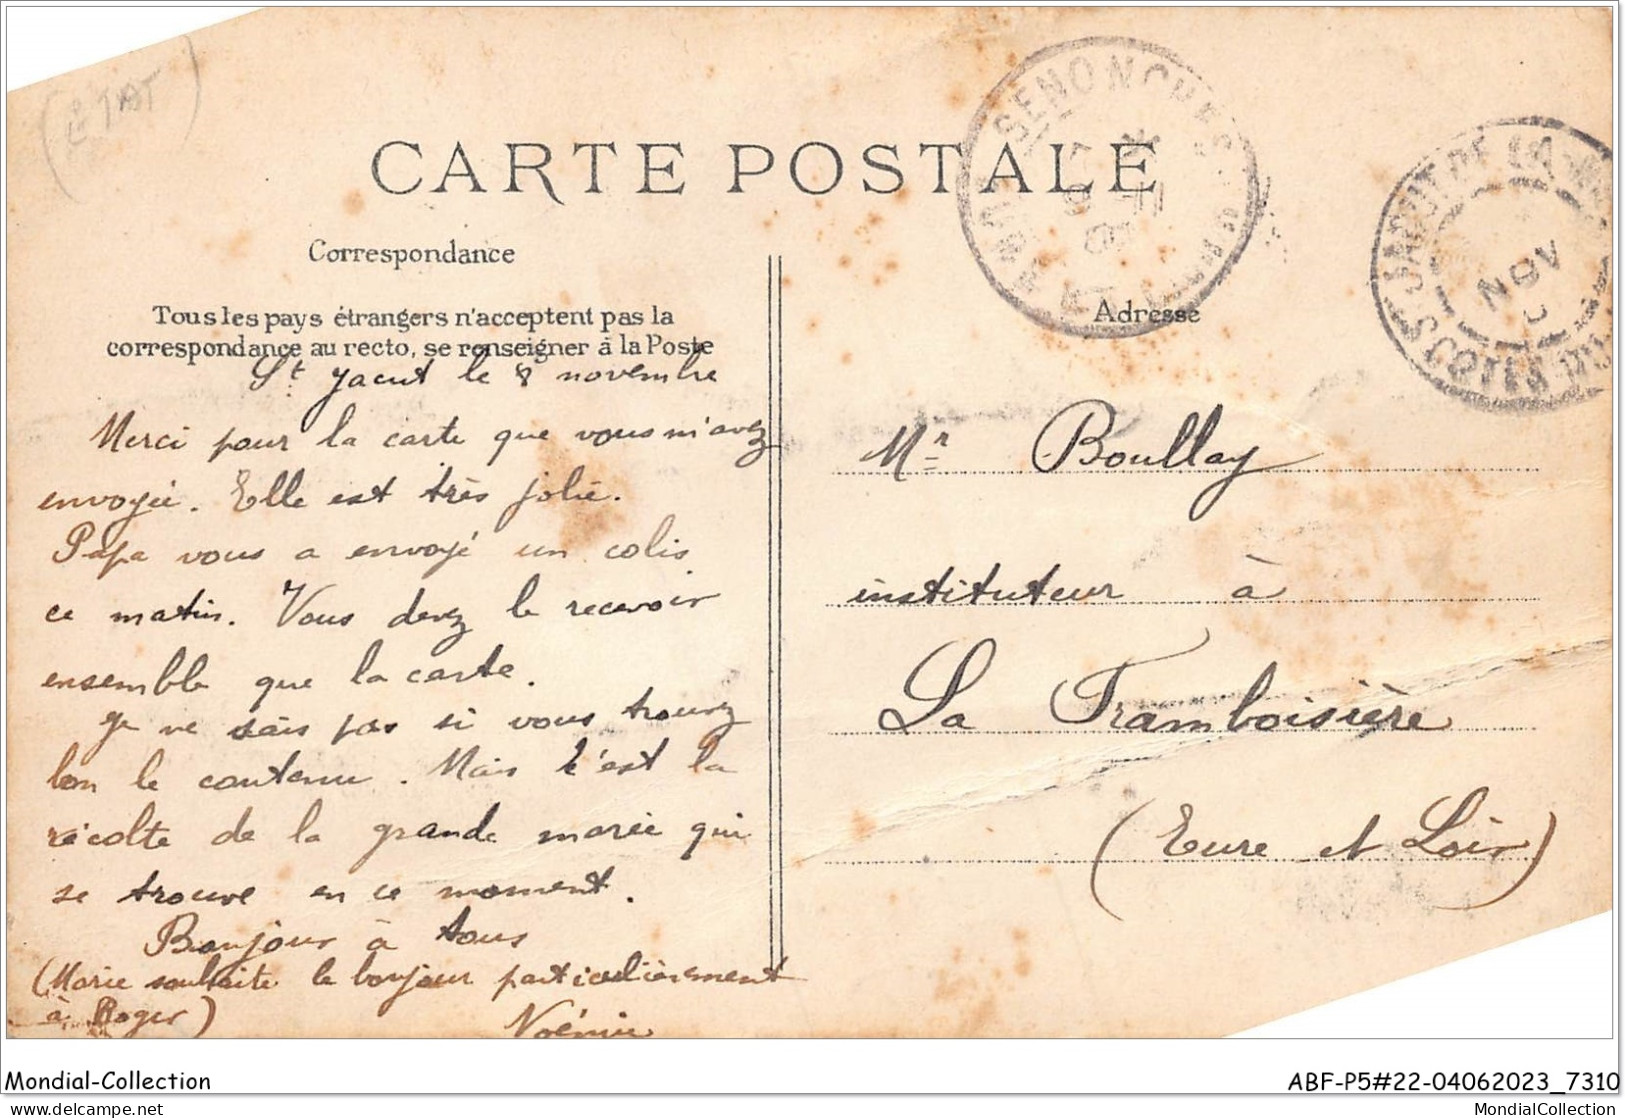 (ÉTAT)
CARTE POSTALE
SENONCHES
St JACUT DE LA MER
NOV
COTES DU
Correspondance
Adresse
Tous les pays étrangers n'acceptent pas la
correspondance au recto, se renseigner à la Poste
St Jacut le 8 novembre
Merci pour la carte que vous m'avez
envoyée. Elle est très jolie.
Papa vous a envoyé un colis
ce matin. Vous devez le recevoir
ensemble que la carte.
Je ne sais pas si vous trouvez
bon le contenu. Mais c'est la
récolte de la grande marée qui
se trouve en ce moment.
Bonjour à tous
(Marie souhaite le bonjour particulièrement
à Roger)
Noémie
Mr Boullay
instituteur à
La Framboisière
(Eure et Loir)
Mondial-Collection
ABF-P5#22-04062023_7310
delcampe.net
MondialCollection